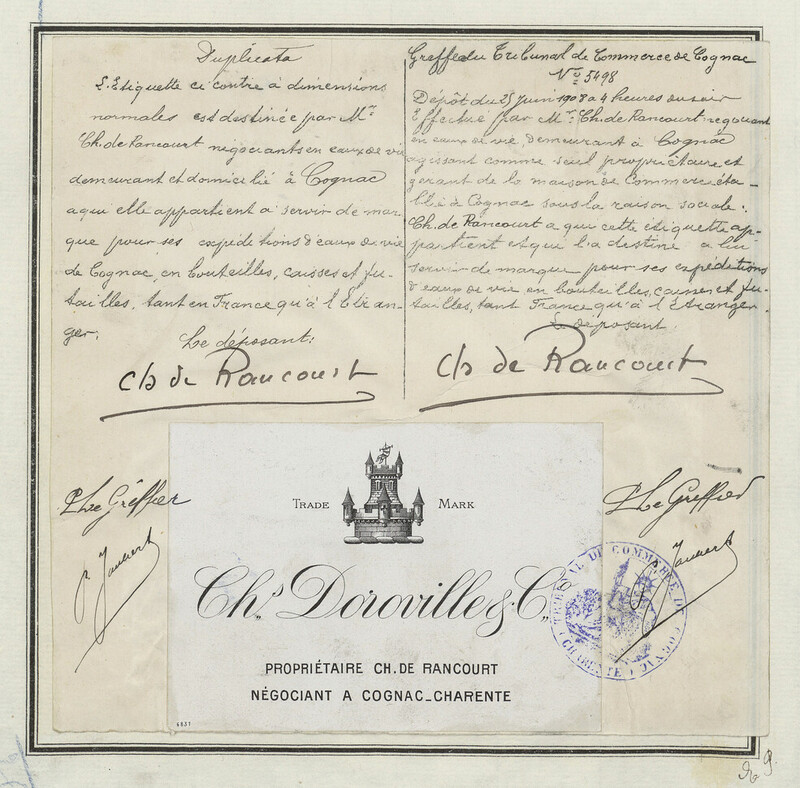 Duplicata
L'Etiquette ci contre à dimensions
normales est destinée par Mr
Ch. de Rancourt négociants en eaux de vie
demeurant et domicilié à Cognac
a qui elle appartient a servir de mar
que pour ses expéditions d'eaux de vie
de Cognac, en bouteilles, caisses et fu-
tailles, tant en France qu'à l'Etran
ger.
Le déposant:
Ch de Rancourt
Greffe du Tribunal de Commerce de Cognac
No 5498
Dépôt du 25 Juin 1908 a 4 heures du soir
Effectué par Mr Ch. de Rancourt négociant
en eaux de vie, demeurant à Cognac
agissant comme seul propriétaire et
gérant de la maison de Commerce éta-
blie à Cognac sous la raison sociale:
Ch. de Rancourt a qui cette étiquette ap-
partient et qui l'a destiné a lui
servir de marque pour ses expéditions
d'eaux de vie en bouteilles, caisses et fu-
tailles, tant France qu'à l'Etranger.
Le déposant
Ch de Rancourt
P Le Greffier
P Le Greffier
TRADE MARK
Chs. Doroville & Cie.
PROPRIÉTAIRE CH. DE RANCOURT
NÉGOCIANT A COGNAC_CHARENTE
4831
TRIBUNAL DE COMMERCE DE COGNAC
(CHARENTE)